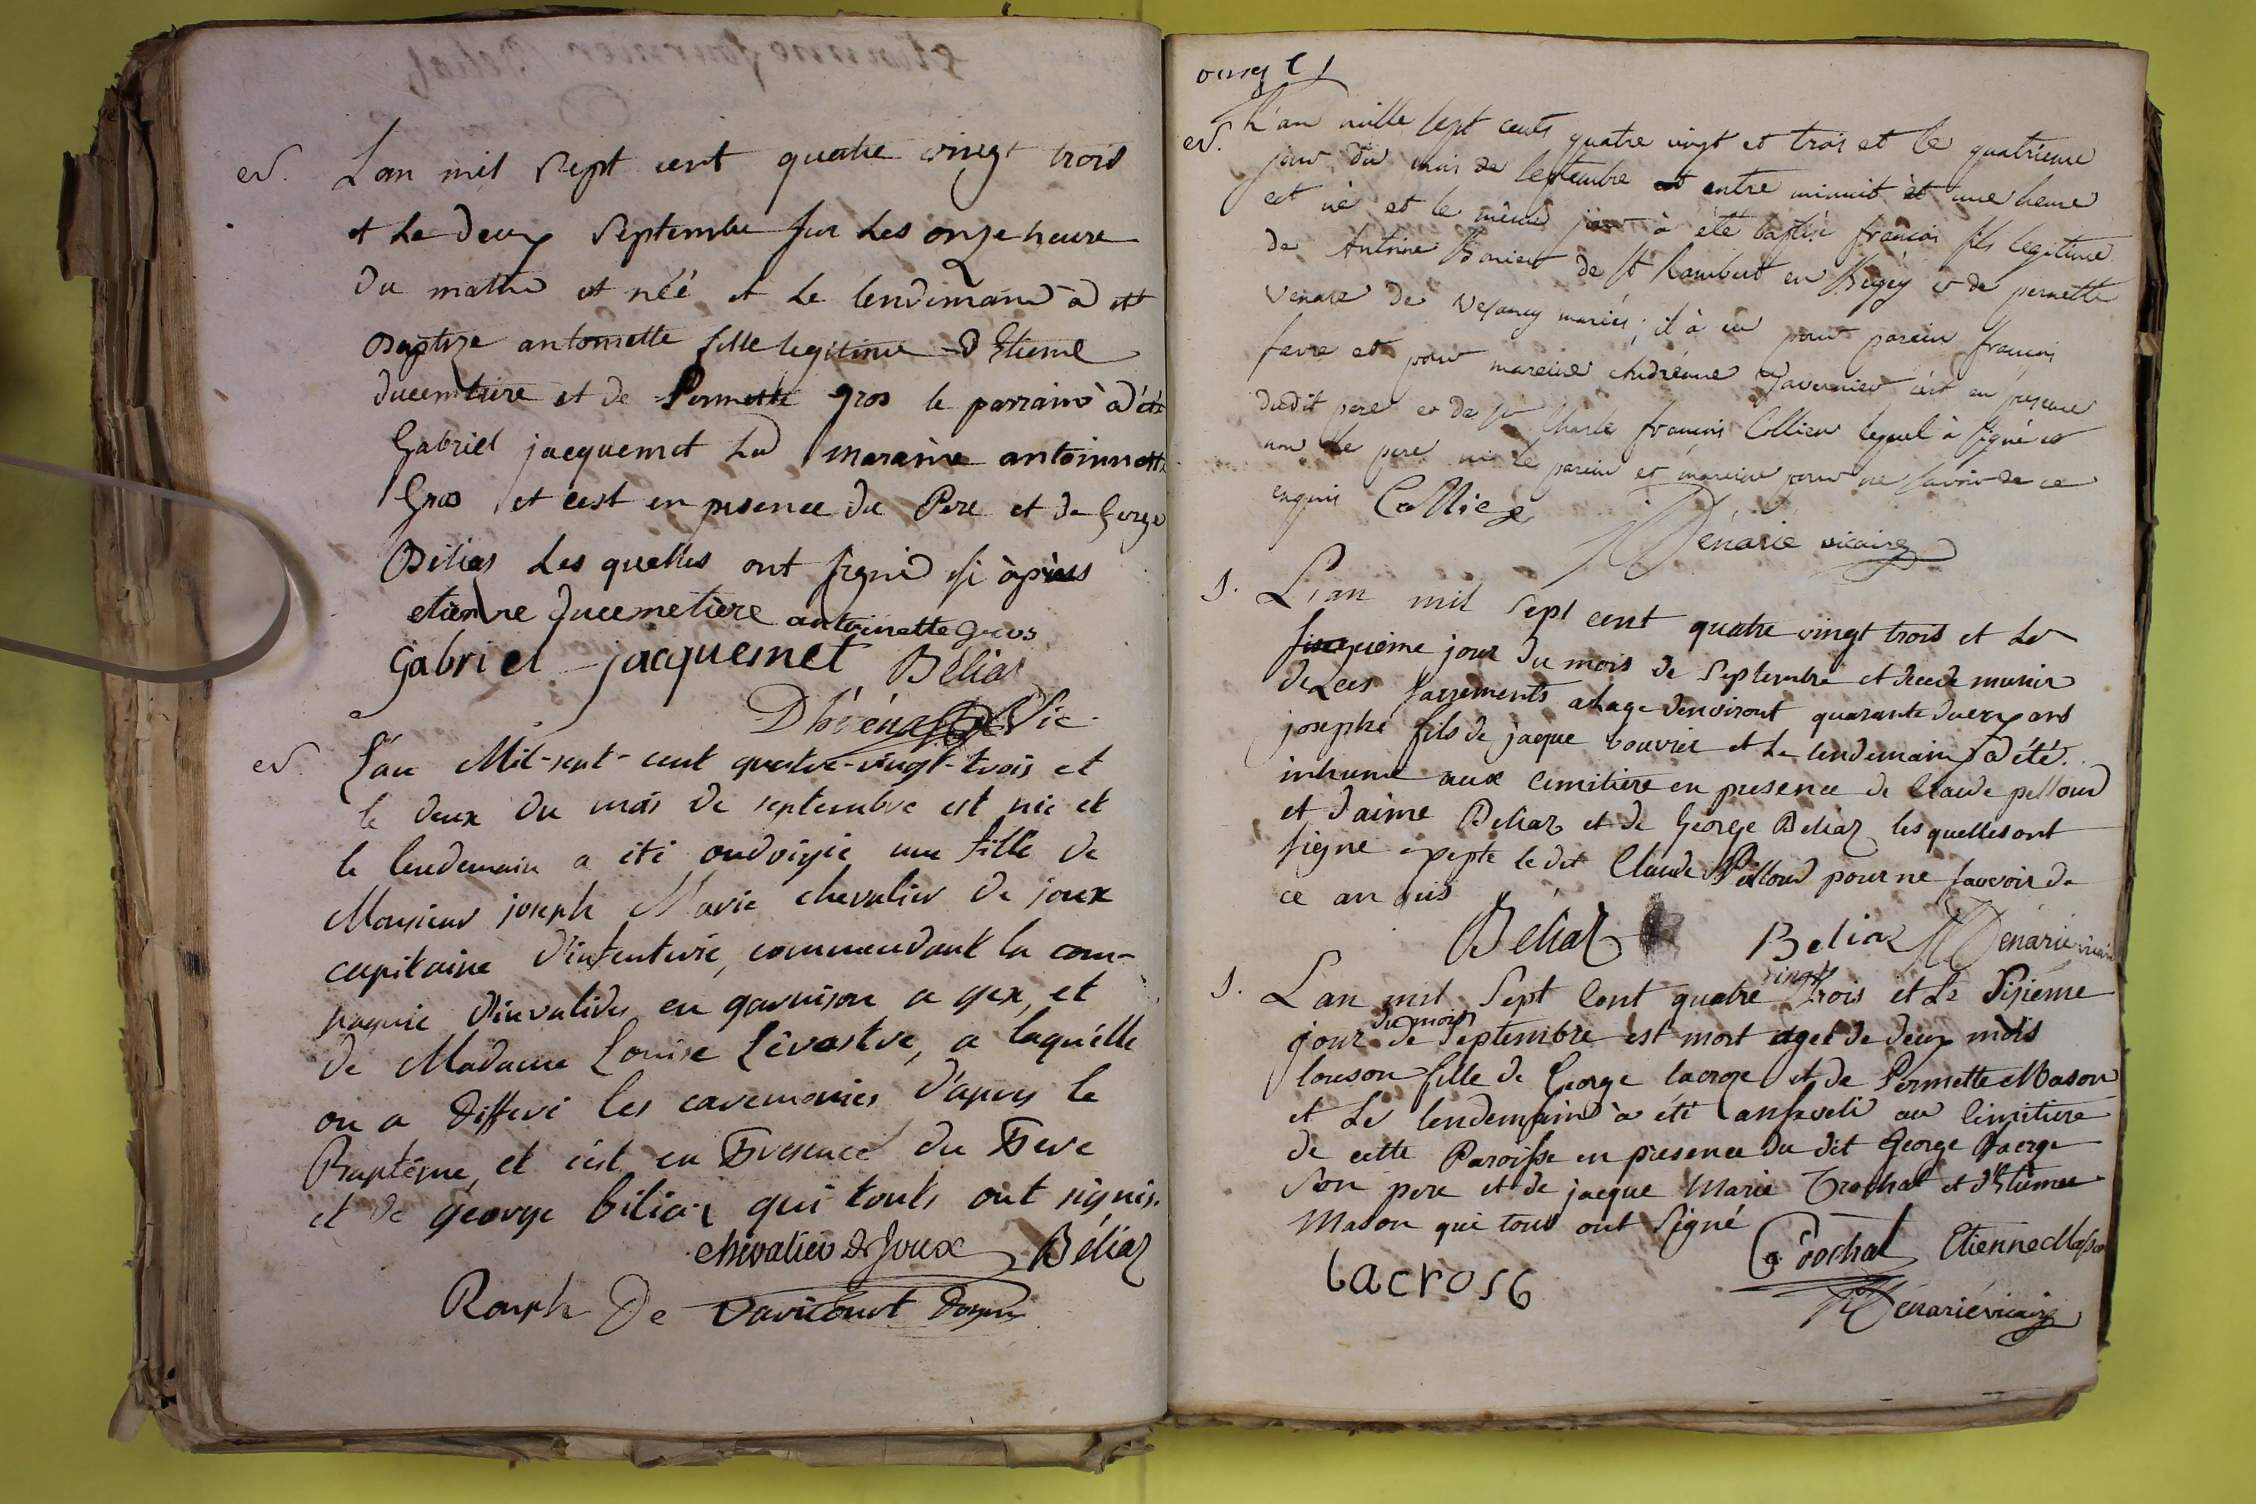 ev. Lan mil Sept cent quatre vingt trois
et Le deux Septembre sur Les onze heure
du matin et néé et Le lendimand à ett
Baptize antoinette fille legitime d'Etienne
ducemtiere et de Pernette gros le parrain à été
Gabriel jacquemet La Maraine antoinnette
Gros et cest en presence du Pere et de George
Béliaz Les quelles ont signé si àpres
etienne ducemetière antoinette gros
gabriel jacquemet Béliaz
Dhénarie Vic.
ev. L'an Mil-sept-cent quatre-vingt-trois et
le deux du mois de septembre est nie et
le lendemain a été ondoyée une fille de
Monsieur joseph Marie chevalier de joux
capitaine d'infanterie, commandant la com-
pagnie d'invalides en garnison a gex, et
de Madame Louise Levastre, a laquélle
on a differé les ceremonies d'aprés le
Baptême, et c'est en Presence du Pere
et de george béliaz qui touts ont signés.
chevalier de Joux Béliaz
Rouph De Varicourt Doyen
onze
ev. L'an mille sept cents quatre vingt et trois et le quatrième
jour du mois de septembre entre minuit et une heure
est né et le même jour à été baptisé françois fils legitime
de Antoine de St Rambert en Bugey & de pernette
de Vesancy mariés; il à eu pour parein françois
favre et pour mareine Tavernier c'est en presence
dudit pere et de Sr Charles françois Collier lequel à signé et
non le pere ni le parein et mareine pour ne savoir de ce
enquis Collier
Dénarié vicaire
S. L'an mil sept cent quatre vingt trois et Le
sinquieme jour du mois de Septembre et decede munir
de Les sacrements alage denviront quarante deux ans
josephe fils de jaque bouvier et Le lendemain à été
inhumé aux cimitiere en presence de Claude pelloud
et d'aime Beliaz et de George Beliaz les quelles ont
signe exepte le dit Claude Pelloud pour ne savoir de
ce an quis
Béliaz Beliaz Dénarié vicaire
vingt
S. Lan mil Sept Cent quatre trois et Le Sisieme
du mois
jour de Septembre est mort aget de deux mois
louson fille de George lacroze et de Pernette Mason
et Le lendemain à été ansaveli au cimitiere
de cette Paroisse en presence du dit George
Son pere et de jacque Marie Crochat et d'Etienne
Mason qui tous ont signé
Crochat Etienne Mason
lacrose
Dénarié vicaire